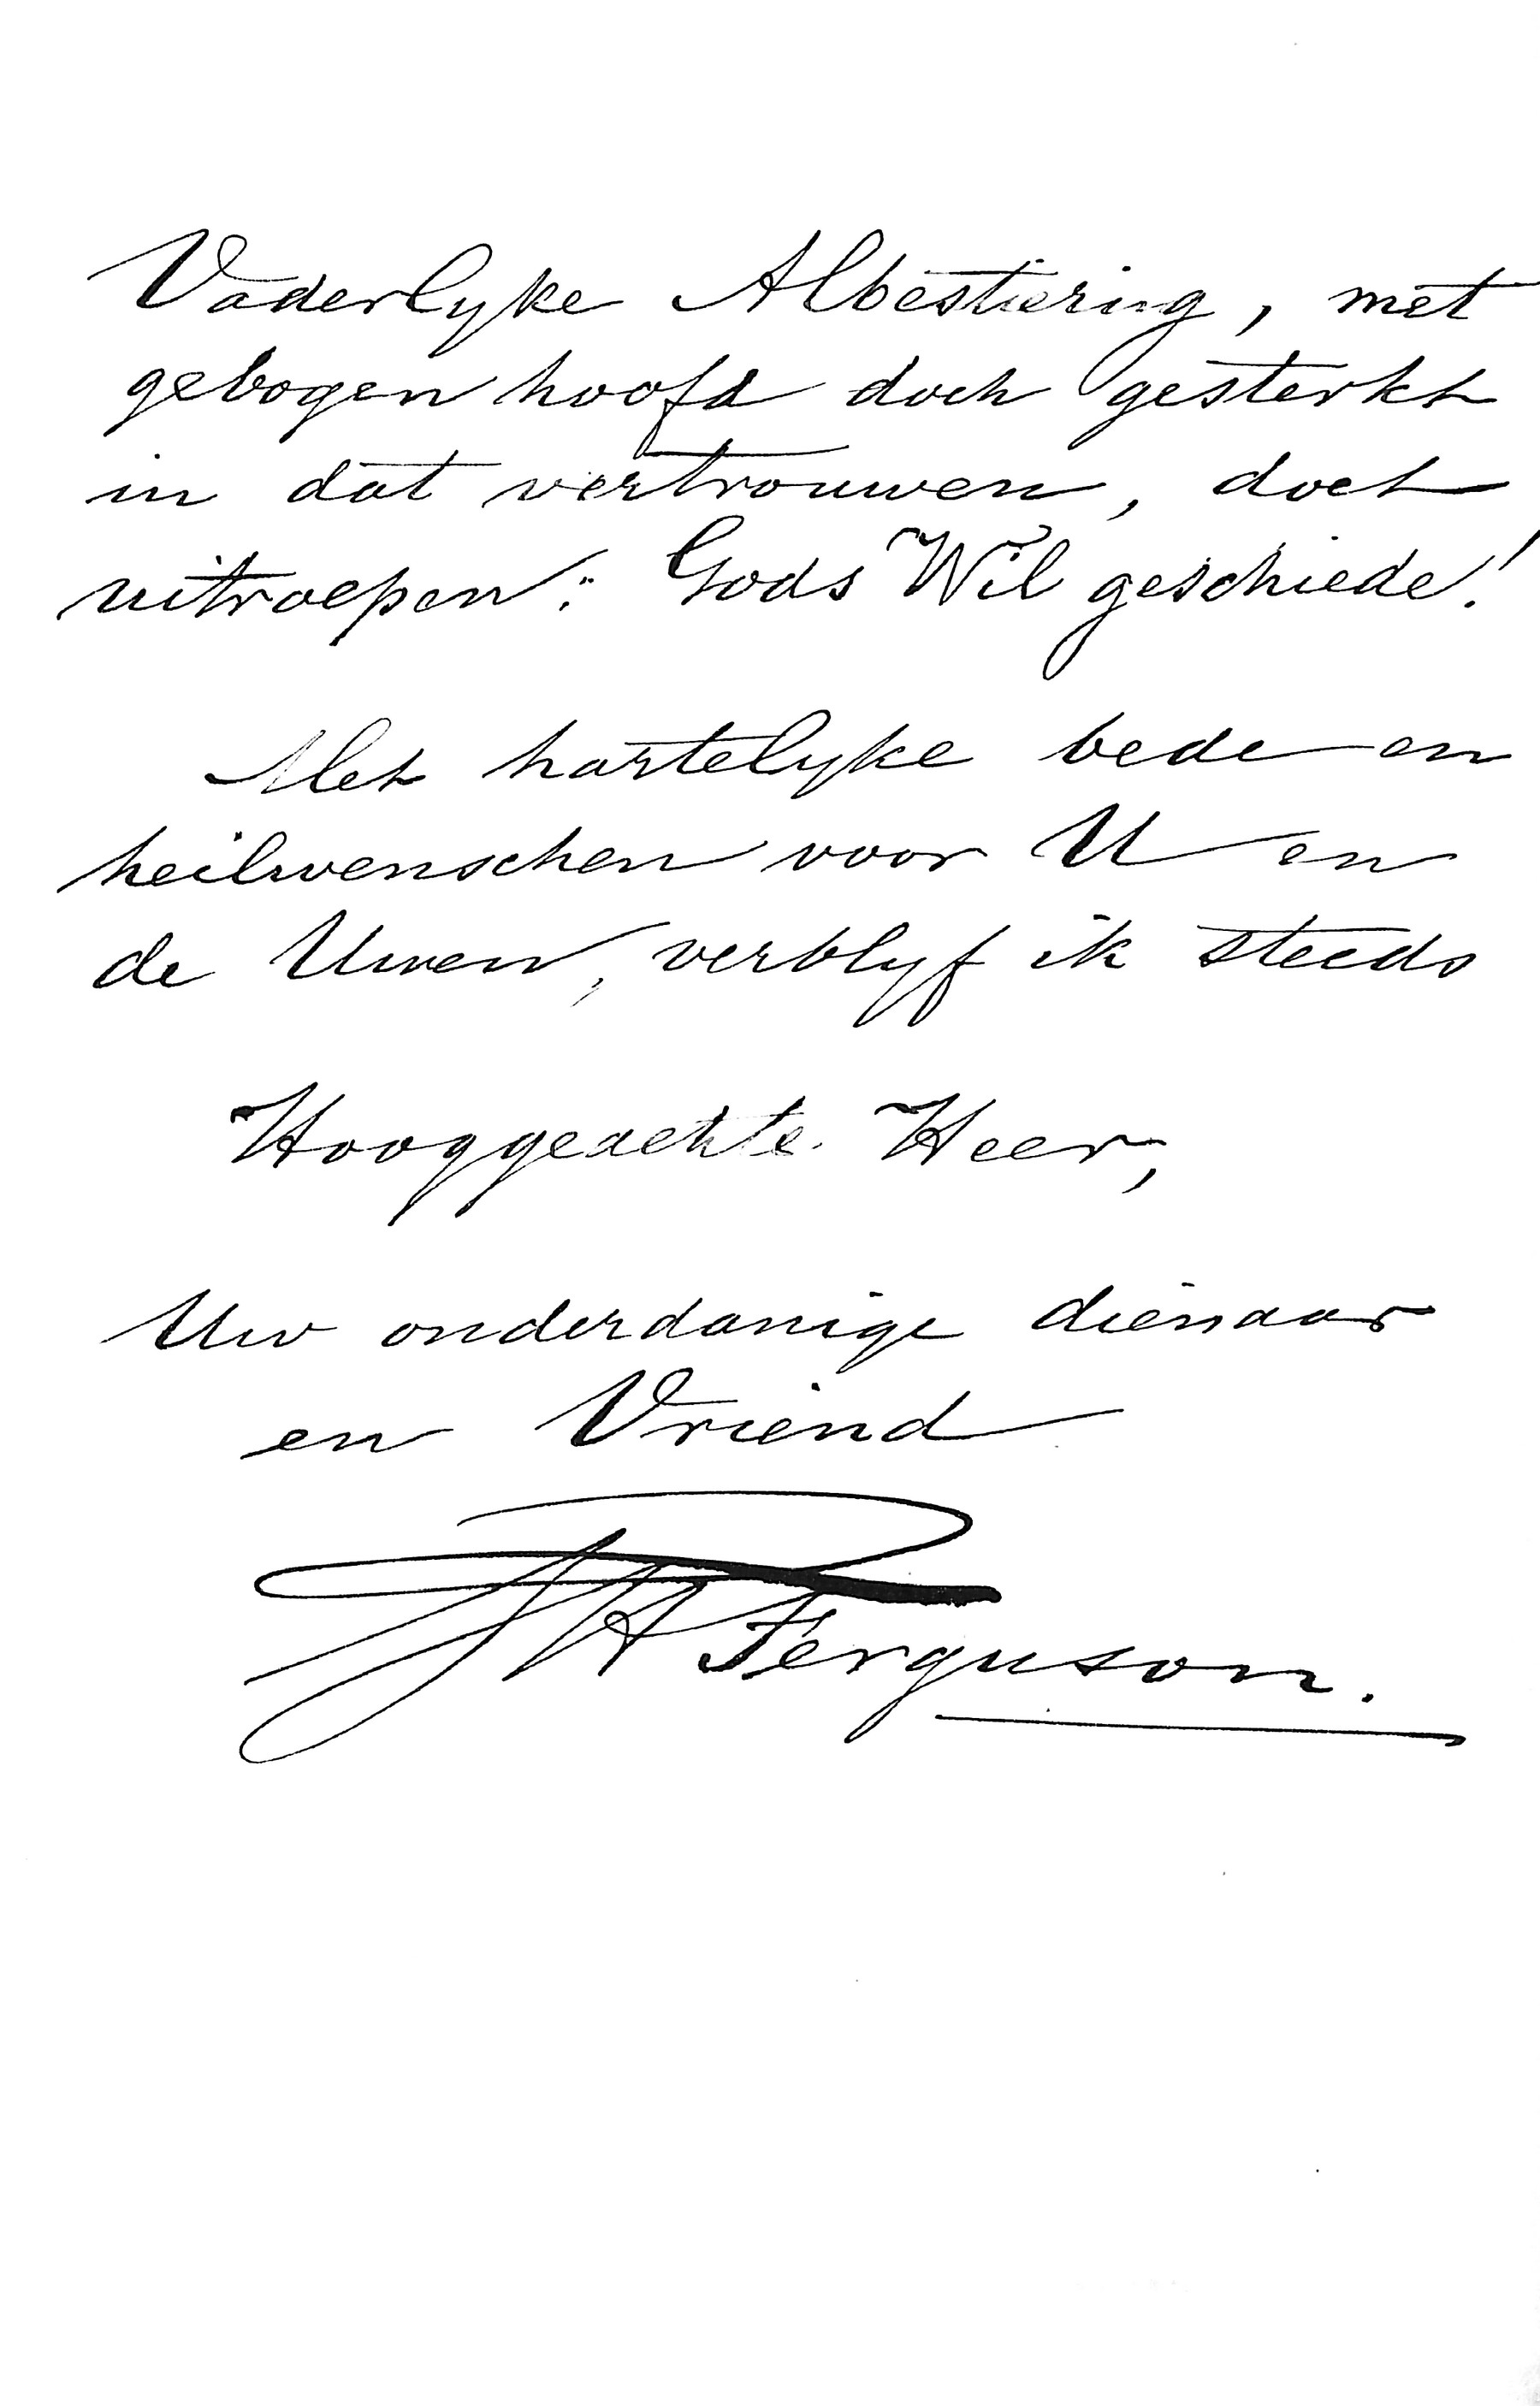 Vaderlyke Albestiering, met
gebogen hoofd doch gesterkt
in dat vertrouwen, doet
uitroepen: Gods Wil geschiede!
Met hartelyke bede en
heilwenschen voor U en
de Uwen, verblyf ik steeds
Hooggeachte Heer,
Uw onderdanige dienaar
en Vriend
JH Ferguson.